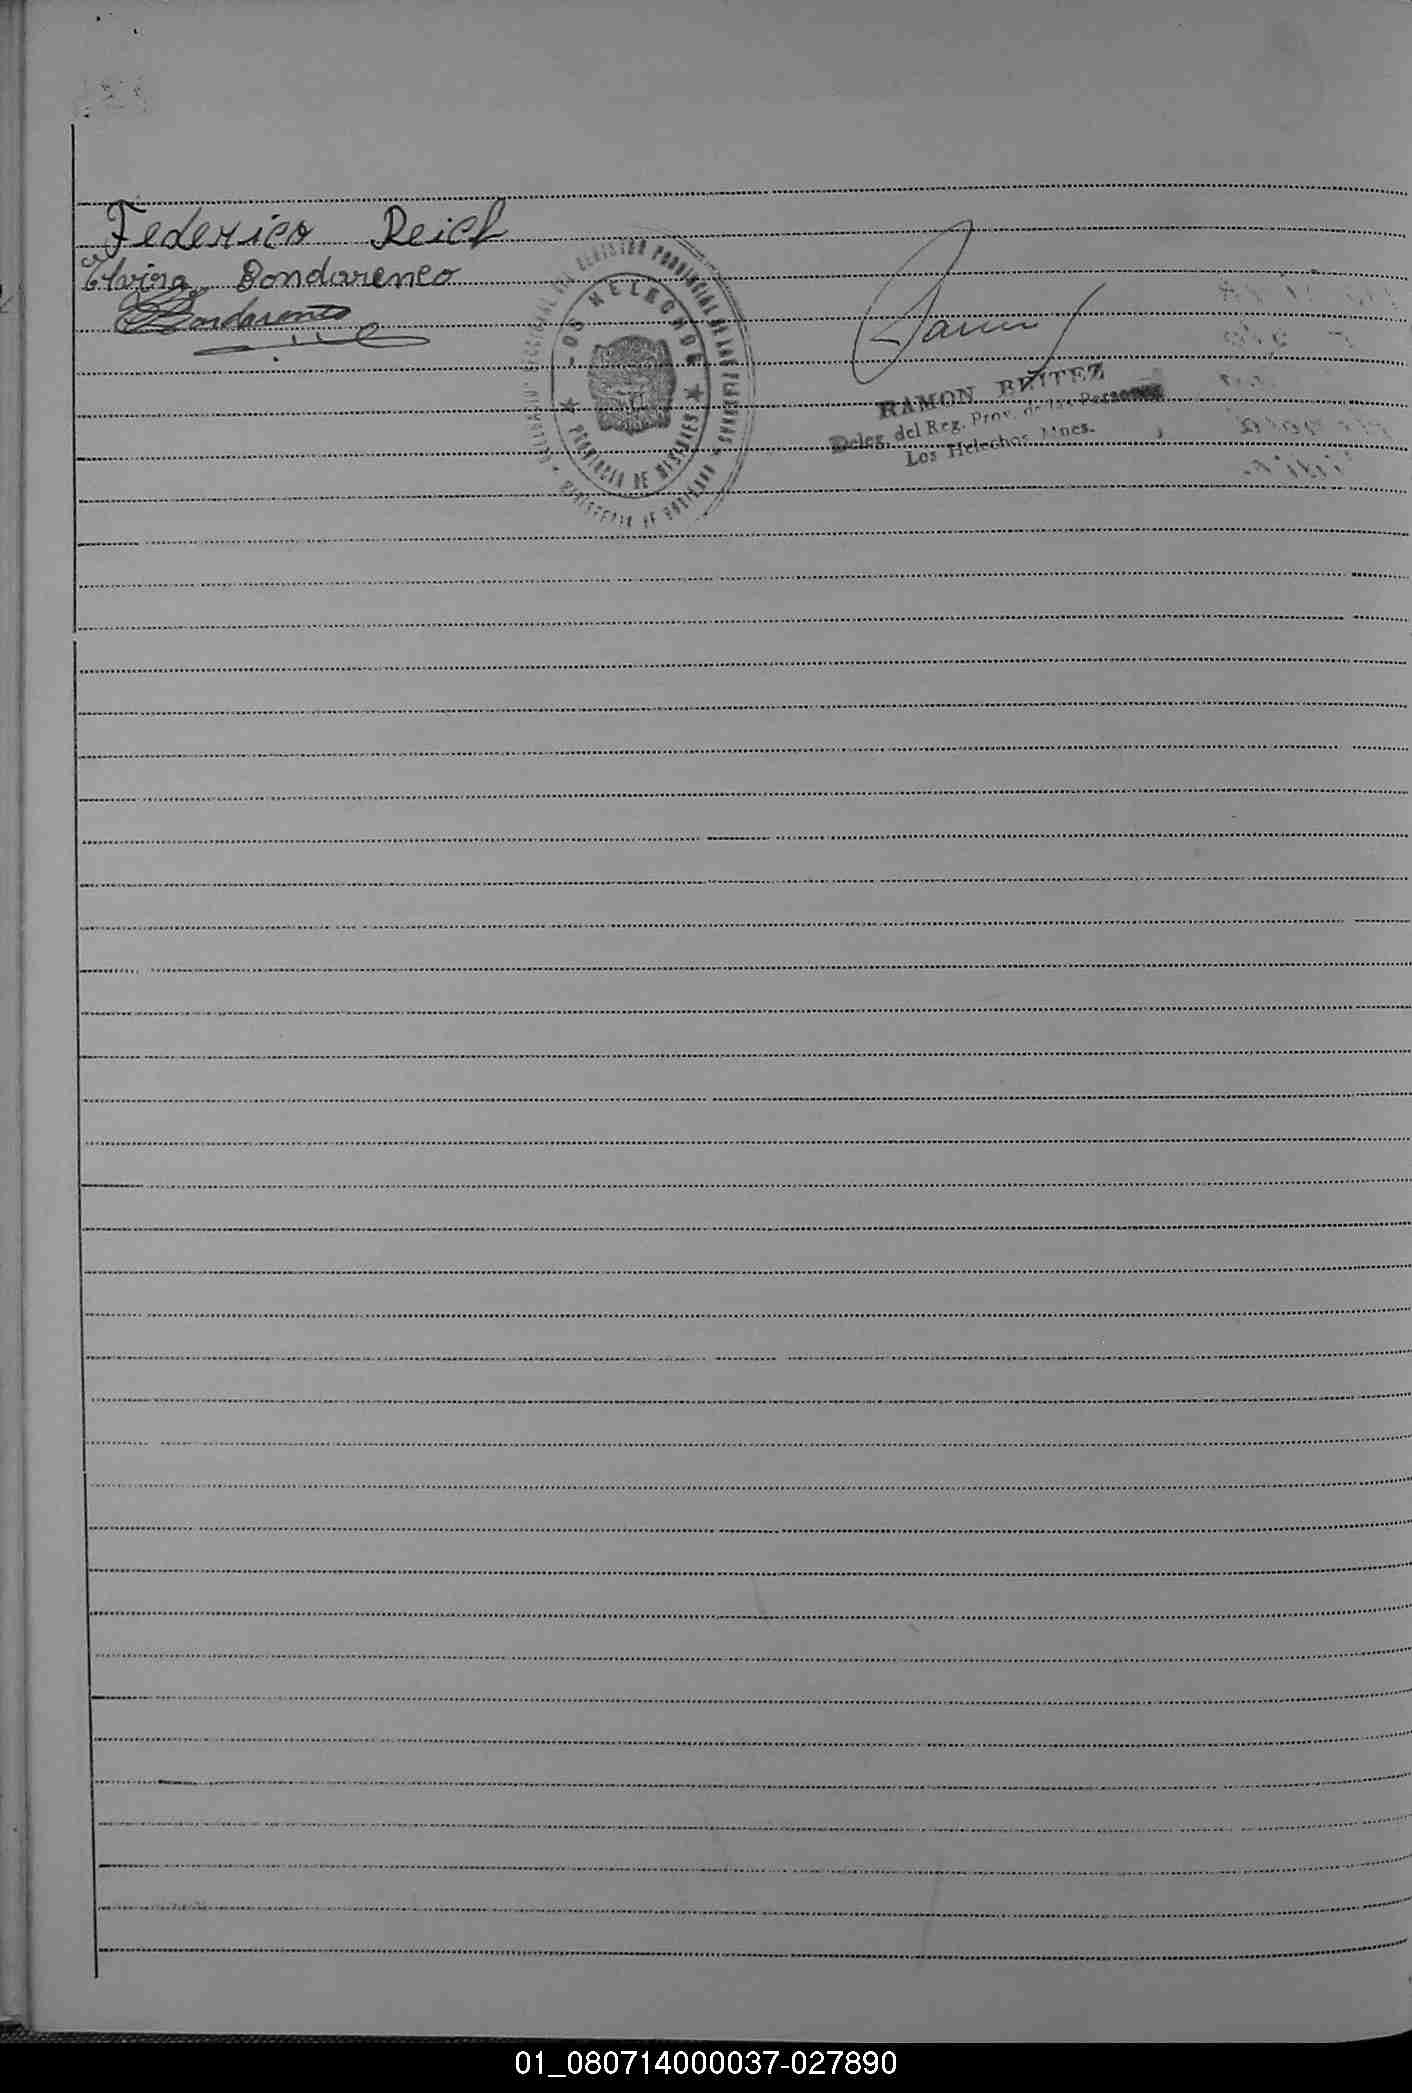 Federico Reich
Elvira Bondarenco
Bondarenco
LOS HELECHOS
PROVINCIA DE MISIONES
REGISTRO PROVINCIAL DE LAS PERSONAS
MINISTERIO DE GOBIERNO
RAMON BENITEZ
Deleg. del Reg. Prov. de las Personas
Los Helechos Mnes.
01_080714000037-027890